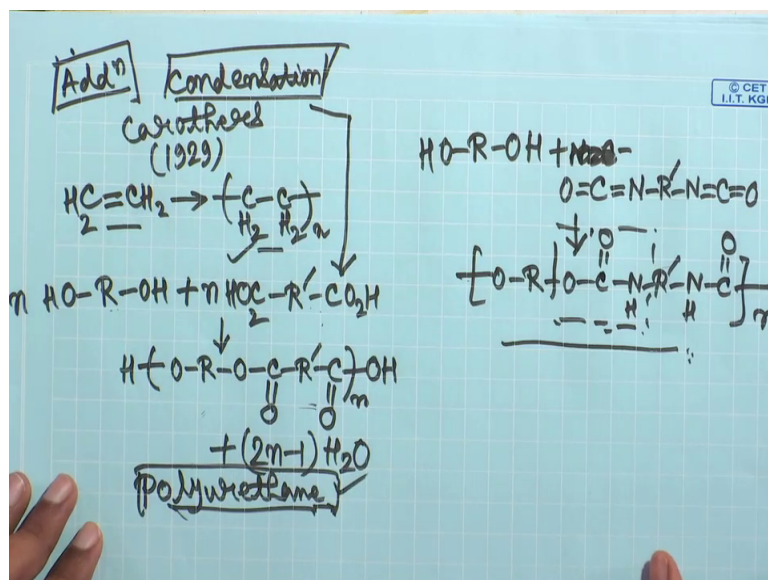 Addⁿ Condensation
Carothers
(1929)
H₂C=CH₂ → -(C-C)-n
H₂ H₂
n HO-R-OH + n HO₂C-R′-CO₂H
↓
H-(O-R-O-C-R′-C)n-OH
O O
+ (2n-1) H₂O
Polyurethane
© CET
I.I.T. KGP
HO-R-OH +
O=C=N-R′-N=C=O
↓
O O
-[O-R-O-C-N-R′-N-C]-n
H H